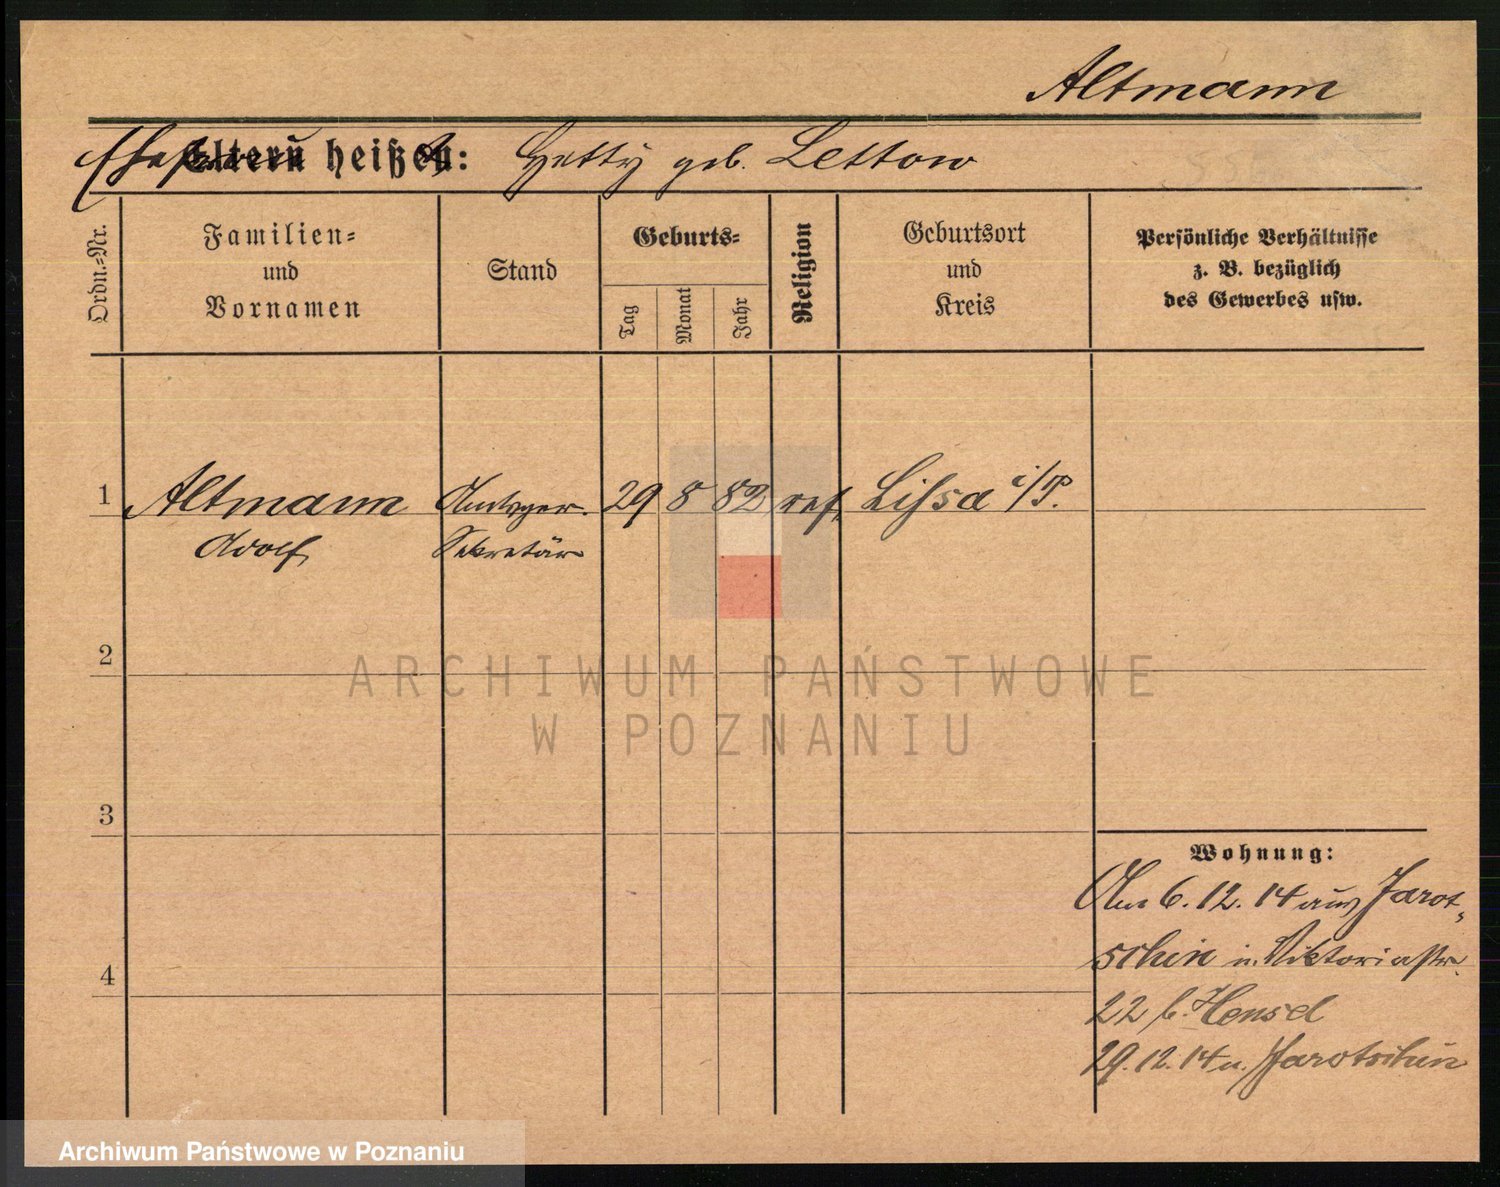 Altmann
Ehefrau heißt: Hetty geb. Lettow
Ordn.-Nr.
Familien-
und
Vornamen
Stand
Geburts-
Tag
Monat
Jahr
Religion
Geburtsort
und
Kreis
Persönliche Verhältnisse
z. B. bezüglich
des Gewerbes usw.
1 Altmann Amtsger. 29 8 82 ref. Lissa i/P.
Adolf Sekretär
2
ARCHIWUM PAŃSTWOWE
W POZNANIU
3
Wohnung:
Am 6. 12. 14 aus Jarot-
schin n. Viktoriastr.
4
22 b. Hensel
29. 12. 14 n. Jarotschin
Archiwum Państwowe w Poznaniu